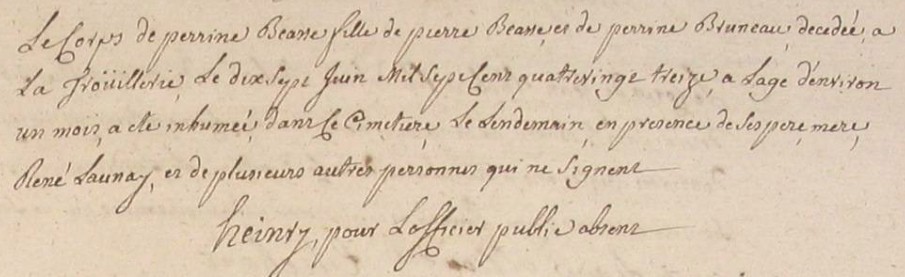 Le Corps de perrine Beasse fille de pierre Beasse, et de perrine Bruneau, decedée, a
La Troüillerie, Le dix Sept Juin Mil Sept Cent quatre vingt treize, a Lage d'environ
un mois, a eté inhumeé, dans Le Cimetiere Le Lendemain, en presence de Ses pere, mere,
René Launay, et de plusieurs autres personnes qui ne Signent
heinry, pour Lofficier public absent